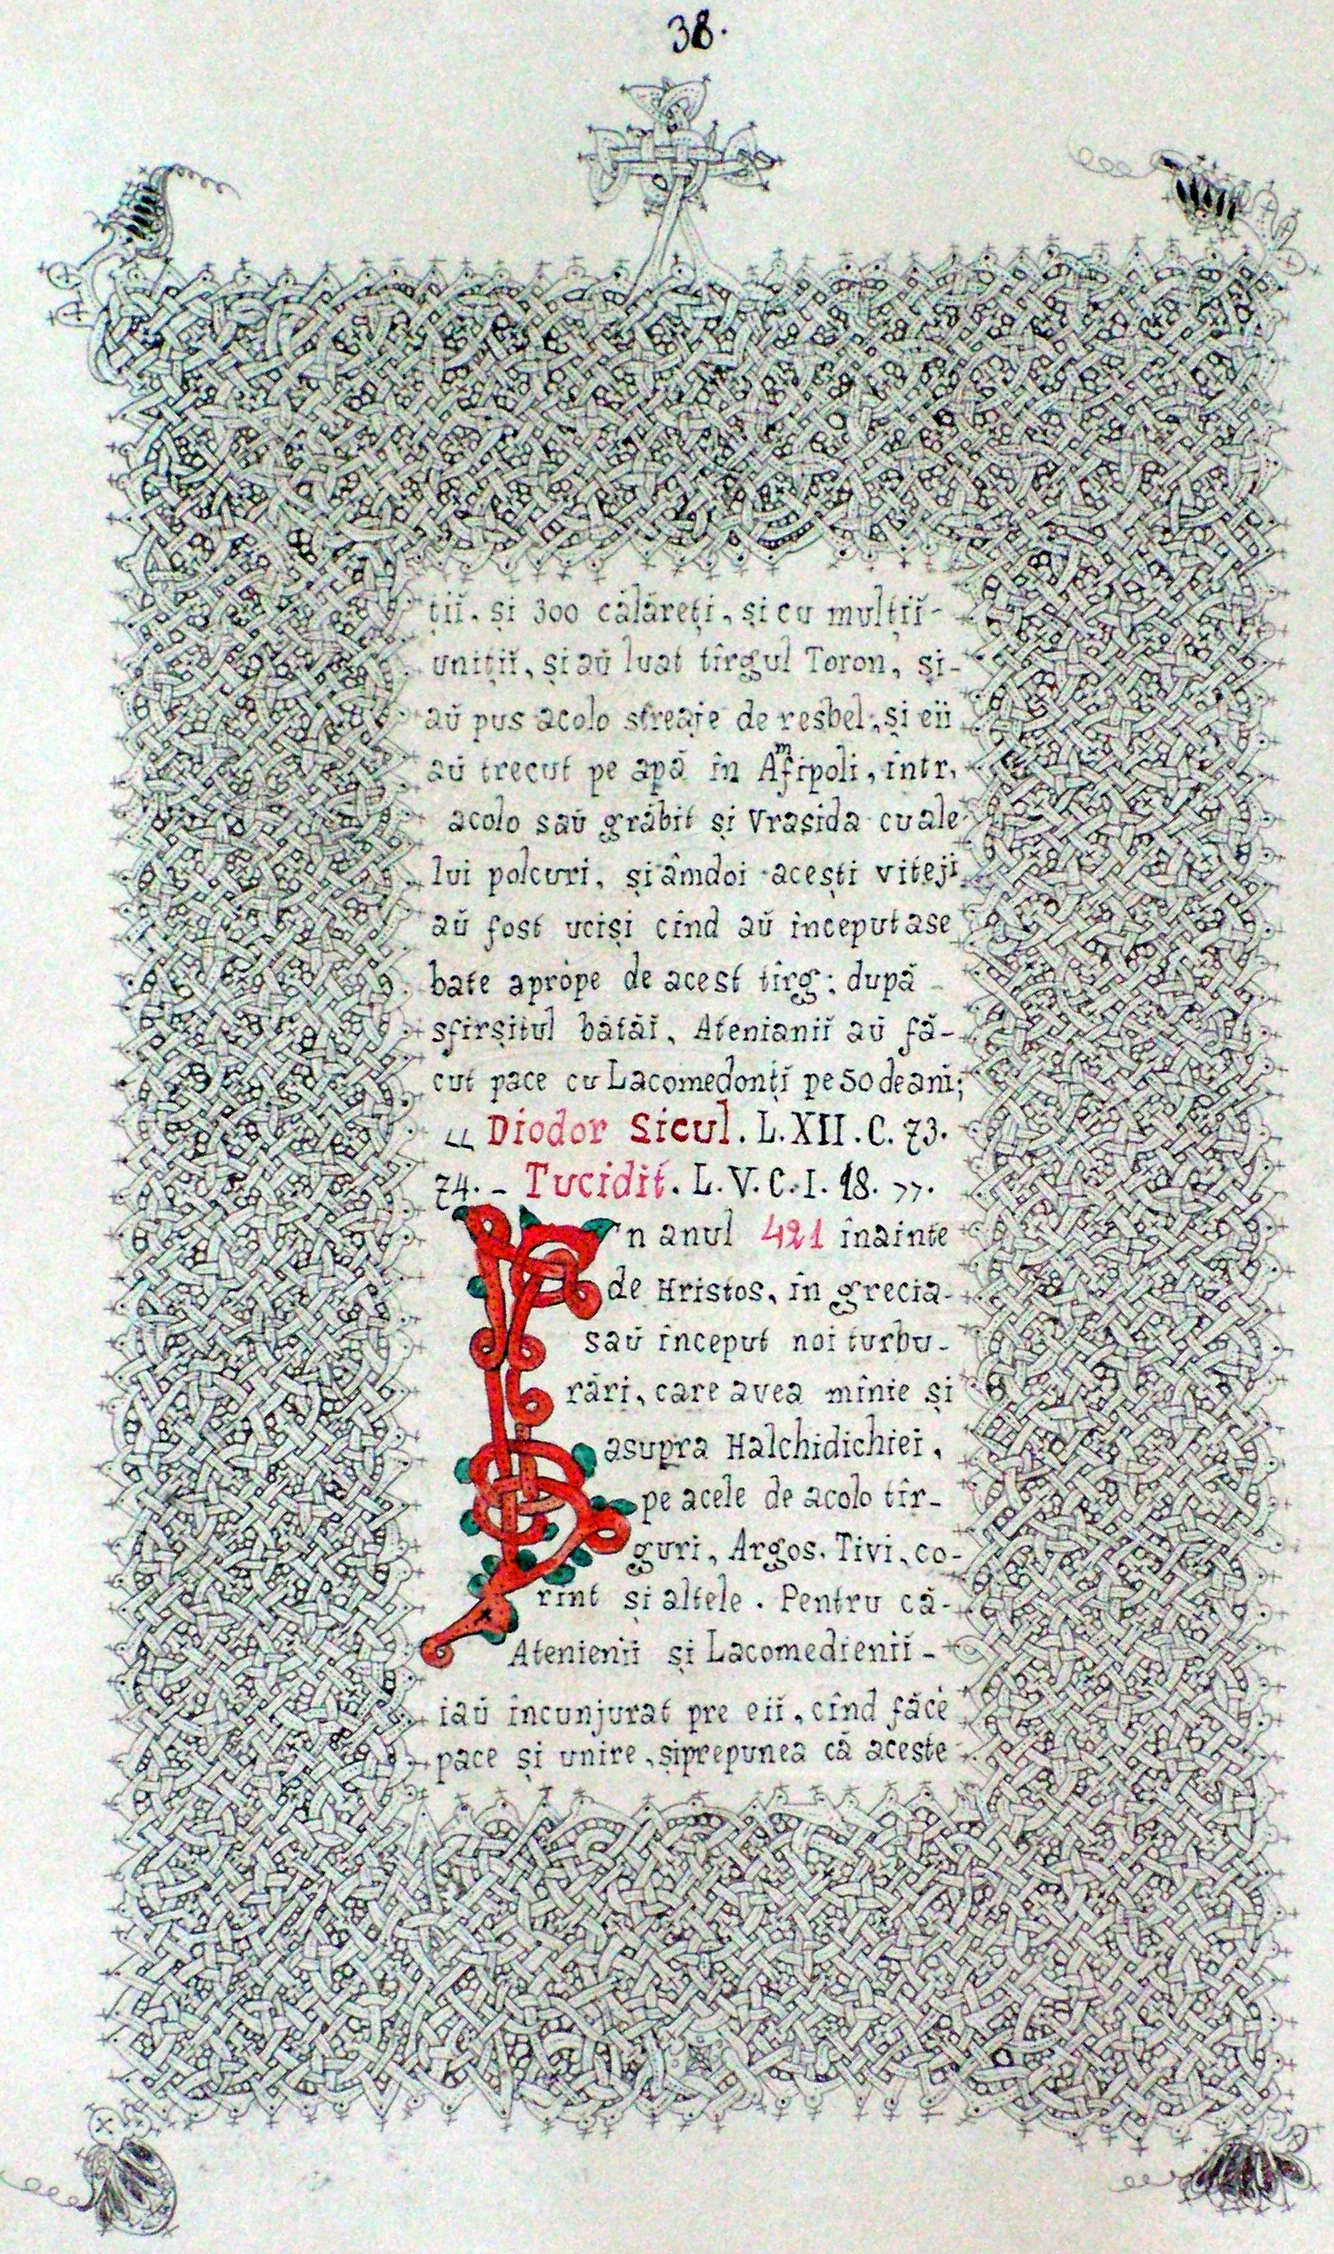 38.
ții. și 300 călăreți, și cu mulțiĭ-
unițiĭ, și aŭ luat tîrgul Toron, și-
aŭ pus acolo streaje de resbel, și eii
aŭ trecut pe apă în Amfipoli, intr,
acolo saŭ grăbit și Vrasida cu ale
lui polcuri, și âmdoi acești viteji
aŭ fost uciși cînd aŭ început ase
bate aprópe de acest tîrg; după -
sfîrșitul bătăĭ, Atenianiĭ aŭ fă-
cut pace cu Lacomedonțĭ pe 50 de ani;
„ Diodor Sicul. L. XII. C. 73.
74. - Tucidit. L. V. C. I. 18. ”.
În anul 421 înainte
de Hristos, în grecia-
saŭ început noi turbu-
rări, care avea mînie și
asupra Halchidichiei,
pe acele de acolo tîr-
guri, Argos, Tivi, co-
rint și altele. Pentru că-
Atenieniĭ și Lacomedieniĭ -
iaŭ încunjurat pre eiĭ, cînd făcè
pace și unire, și prepunea că aceste